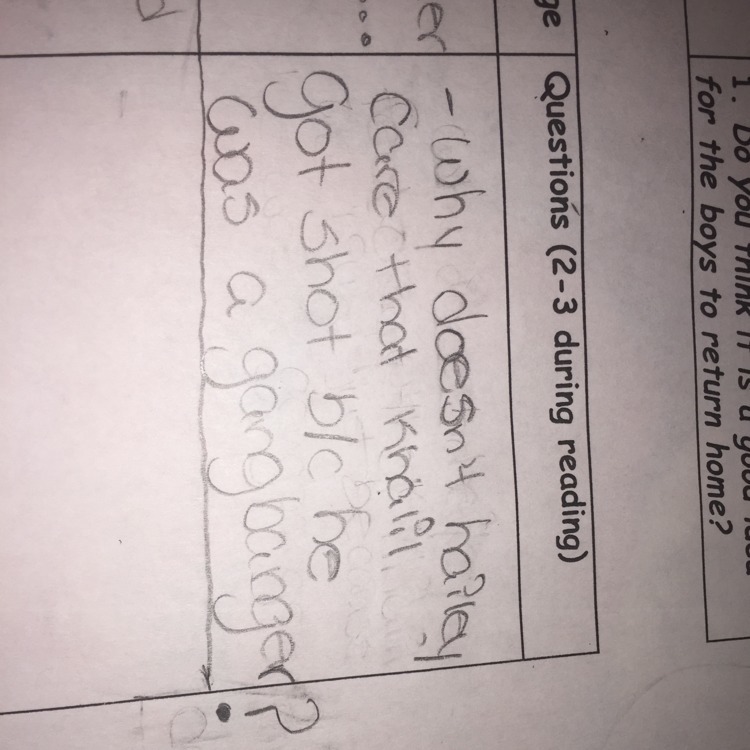 1. Do you think it is a good idea
for the boys to return home?
ge
Questions (2-3 during reading)
er
...
- Why doesn't hailey
care that Khalil
got shot b/c he
was a gangbanger?
d